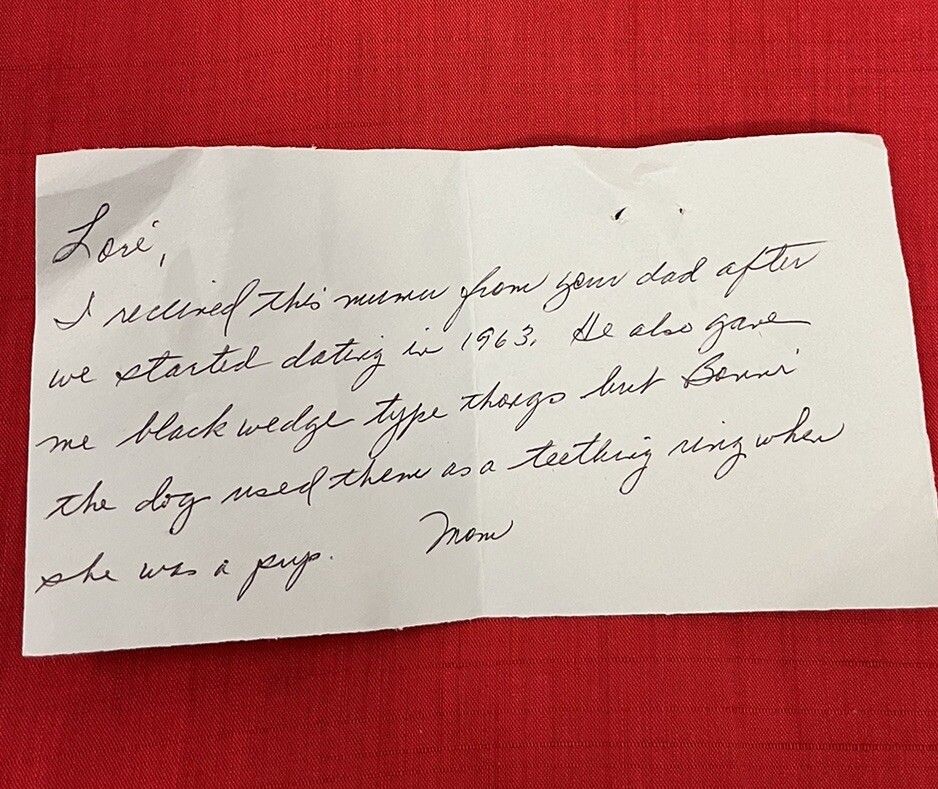 Lori,
I received this mumu from your dad after
we started dating in 1963. He also gave
me black wedge type thongs but Bonni
the dog used them as a teething ring when
she was a pup. Mom